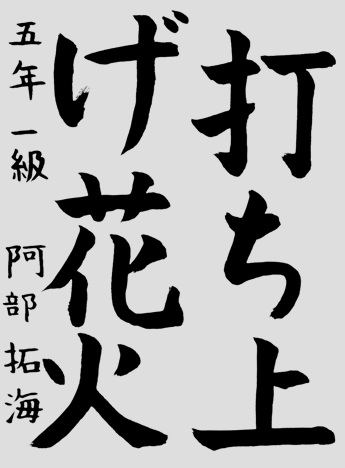 打ち上
げ花火
五年 一級 阿部 拓海